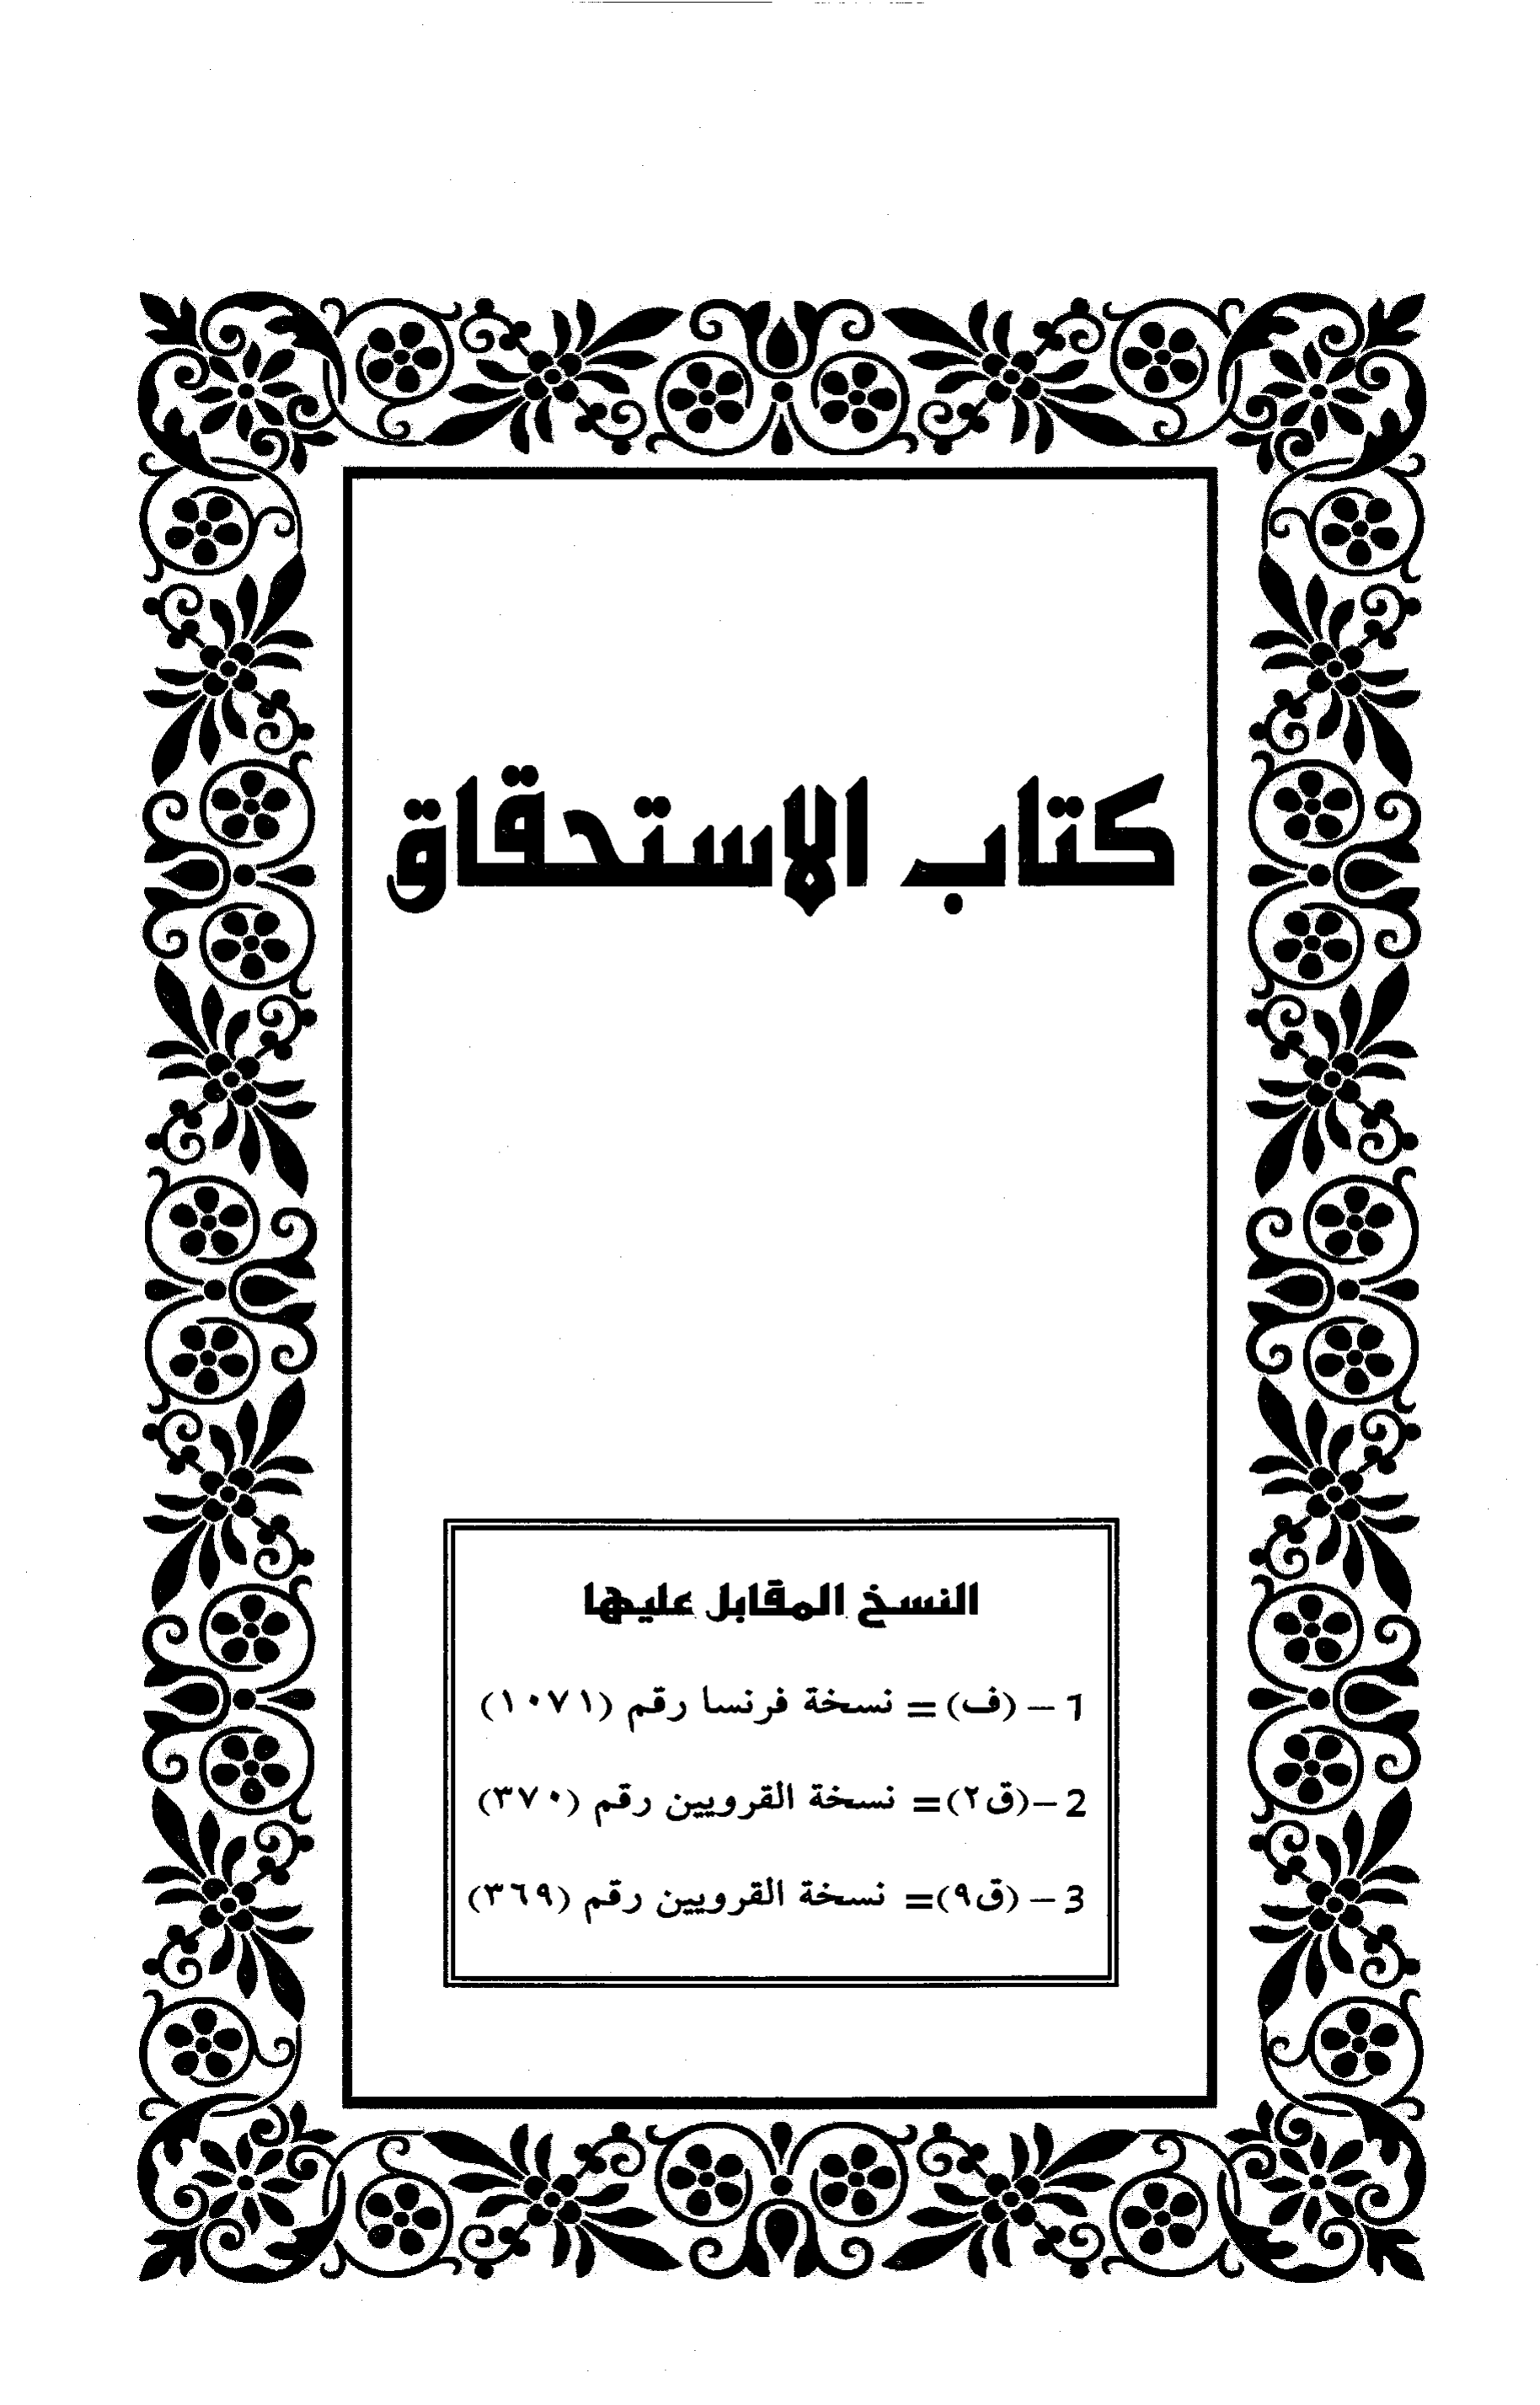 كتاب الاستحقاق
النسخ المقابل عليها
1 – (ف) = نسخة فرنسا رقم (١٠٧١)
2 –(ق٢)= نسخة القرويين رقم (٣٧٠)
3 – (ق٩)= نسخة القرويين رقم (٣٦٩)